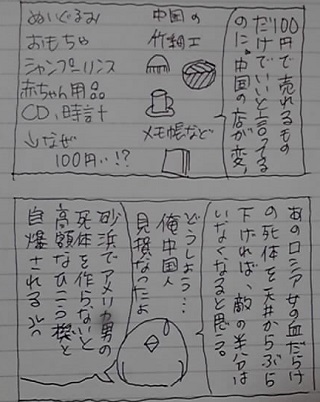 100円で売れるもの
だけでいいと言ってる
のに。中国の店が変。
中国の
竹細工
メモ帳など
ぬいぐるみ
おもちゃ
シャンプーリンス
赤ちゃん用品
CD、時計
↓なぜ
100円‥!?
あのロシア女の血だらけ
の死体を天井からぶら
下げれば、敵の半分は
いなくなると思う。
どうしよう…
俺中国人
見損なったよ
砂浜でアメリカ男の
死体を作らないと
高額なひこう機と
自爆される